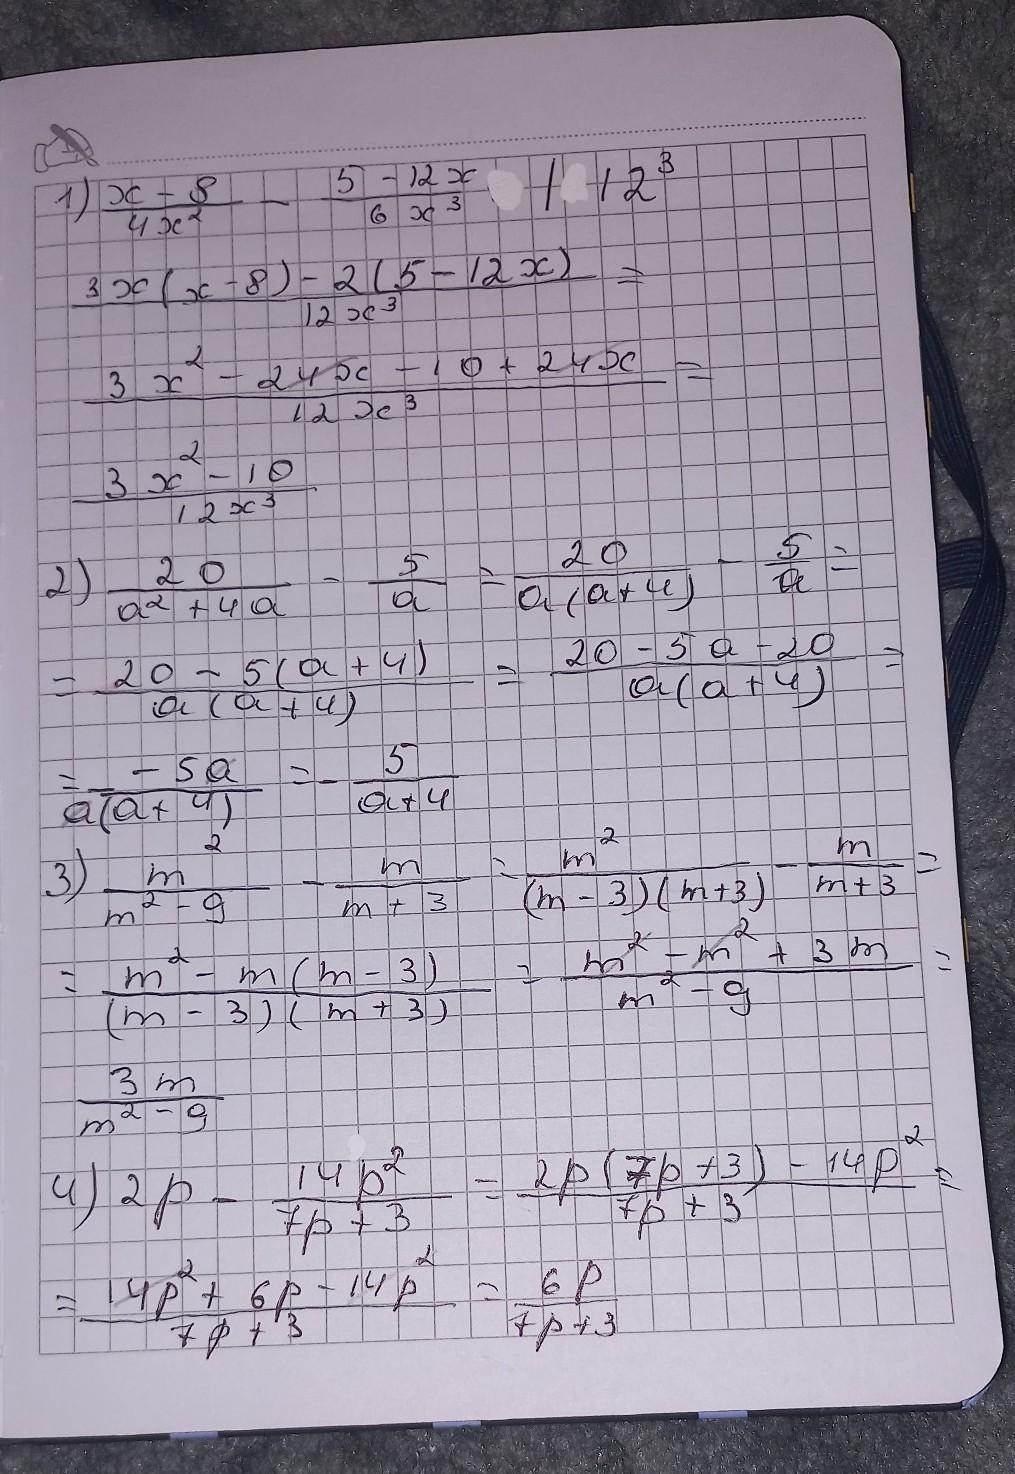 1) (x - 8)/(4x²) - (5 - 12x)/(6x³) | 12³
(3x(x - 8) - 2(5 - 12x))/(12x³) =
(3x² - 24x - 10 + 24x)/(12x³) =
(3x² - 10)/(12x³)
2) 20/(a² + 4a) - 5/a = 20/(a(a+4)) - 5/a =
= (20 - 5(a+4))/(a(a+4)) = (20 - 5a - 20)/(a(a+4)) =
= (-5a)/(a(a+4)) = - 5/(a+4)
3) m²/(m² - 9) - m/(m + 3) = m²/((m - 3)(m+3)) - m/(m+3) =
= (m² - m(m - 3))/((m - 3)(m + 3)) = (m² - m² + 3m)/(m² - 9) =
3m/(m² - 9)
4) 2p - 14p²/(7p + 3) = (2p(7p + 3) - 14p²)/(7p + 3) =
= (14p² + 6p - 14p²)/(7p + 3) = 6p/(7p+3)